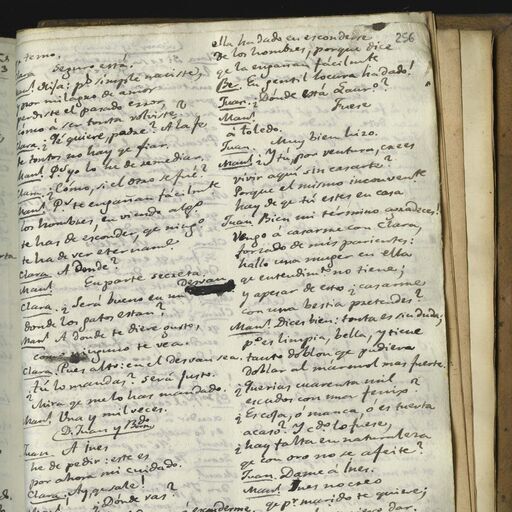 temo,
Clara. Seguro está.
Maut. Hija: pr. simple naciste,
y por milagro de amor
perdiste el pasado error,
como a ser tonta volviste?
Clara. ¿Té quiere, padre? A la fe
de tontos no hay que fiar.
Maut. Ps. yo lo he de remediar.
Clara. ¿Como, si el otro se fué?
Maut. Ps. te engañan facilmte.
los hombres, en viendo algo
te has de esconder, que ningo.
te ha de ver eternamte.
Clara. A donde?
Maut. En parte secreta.
Clara. ¿Será bueno en un Desvan
donde los gatos estan?
Maut. A donde te diere gusto,
como ninguno te vea.
Clara. Pues alto: en el desvan sea.
¿tú lo mandas? Será justo.
Mira que me lo has mandado.
Maut. Una y mil veces.
D. Juan y Bdo.
Juan. A Ines
he de pedir: este es
por ahora mi cuidado.
Clara. Ay, vale!
Maut. ¿Dónde vas?
esconderme,
256
ella ha dado en esconderse
De los hombres, porque dice
qe. la engañan facilmte.
Be. En gentil locura ha dado!
Juan. ¿Dónde está Lauro?
Maut. Fuese
á toledo.
Juan. Muy bien hizo.
Maut. ¿Y tú, por ventura, crees
vivir aquí sin casarte?
Porque el mismo inconvente.
hay de que tú estes en casa
Juan. Bien mi término agradeces!
Vengo á casarme con Clara,
forzado de mis parientes:
hallo una muger en ella
que entendimto. no tiene;
y apesar de esto ¿casarme
con una bestia pretendes?
Maut. Dices bien: tonta es sin duda;
po. es limpia, bella, y tiene
tanto doblon, que pudiera
Doblar al marmol mas fuerte.
¿Querias cuarenta mil
escudos con mar fenix?
¿Es coja, ó manca, ó es tuerta
acaso? y cdo. lo fuese,
¿hay falta en naturaleza
que con oro no se afeite?
Juan. Dame á Ines.
Maut. Ines no creo
qe. pr. marido te quiere;
dar.